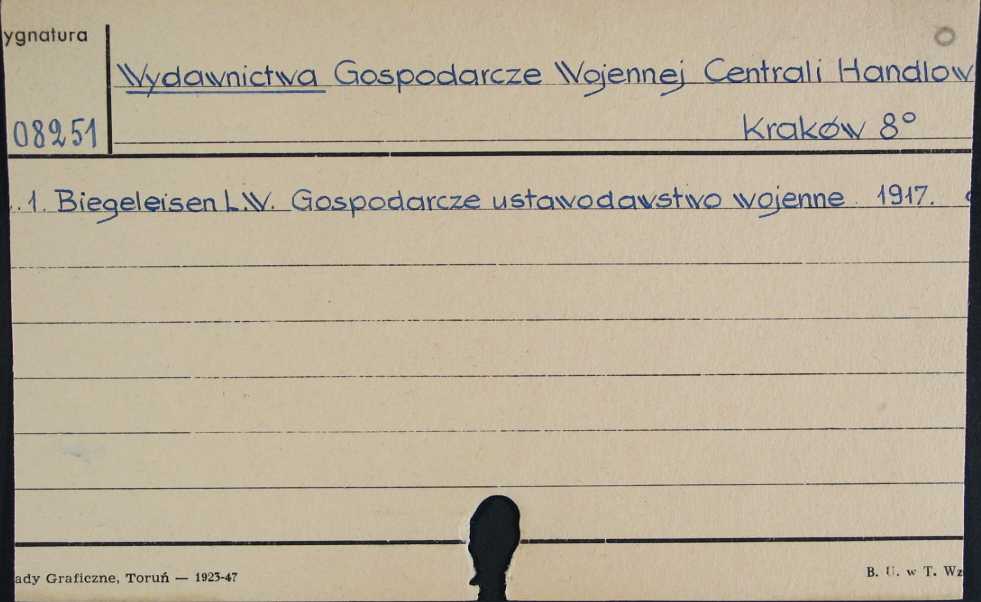 ygnatura
Wydawnictwa Gospodarcze Wojennej Centrali Handlow
08251
Kraków 8°
1. Biegeleisen L.W. Gospodarcze ustawodawstwo wojenne. 1917.
ady Graficzne, Toruń — 1923-47
B. U. w T. Wz